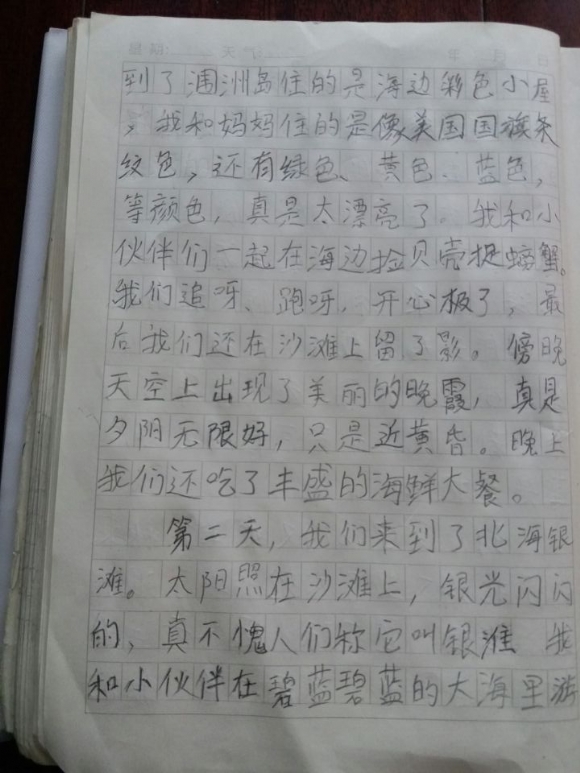 星期: 天气: 年 月 日
到了涠洲岛住的是海边彩色小屋
，我和妈妈住的是像美国国旗条
纹色，还有绿色、黄色、蓝色，
等颜色，真是太漂亮了。我和小
伙伴们一起在海边捡贝壳捉螃蟹。
我们追呀、跑呀，开心极了，最
后我们还在沙滩上留了影。傍晚
天空上出现了美丽的晚霞，真是
夕阳无限好，只是近黄昏。晚上
我们还吃了丰盛的海鲜大餐。
第二天，我们来到了北海银
滩。太阳照在沙滩上，银光闪闪
的，真不愧人们称它叫银滩 我
和小伙伴在碧蓝碧蓝的大海里游